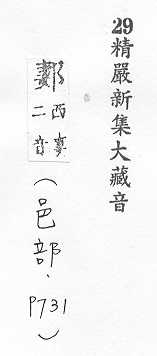 29精嚴新集大藏音
西
二音
（邑部、P731）